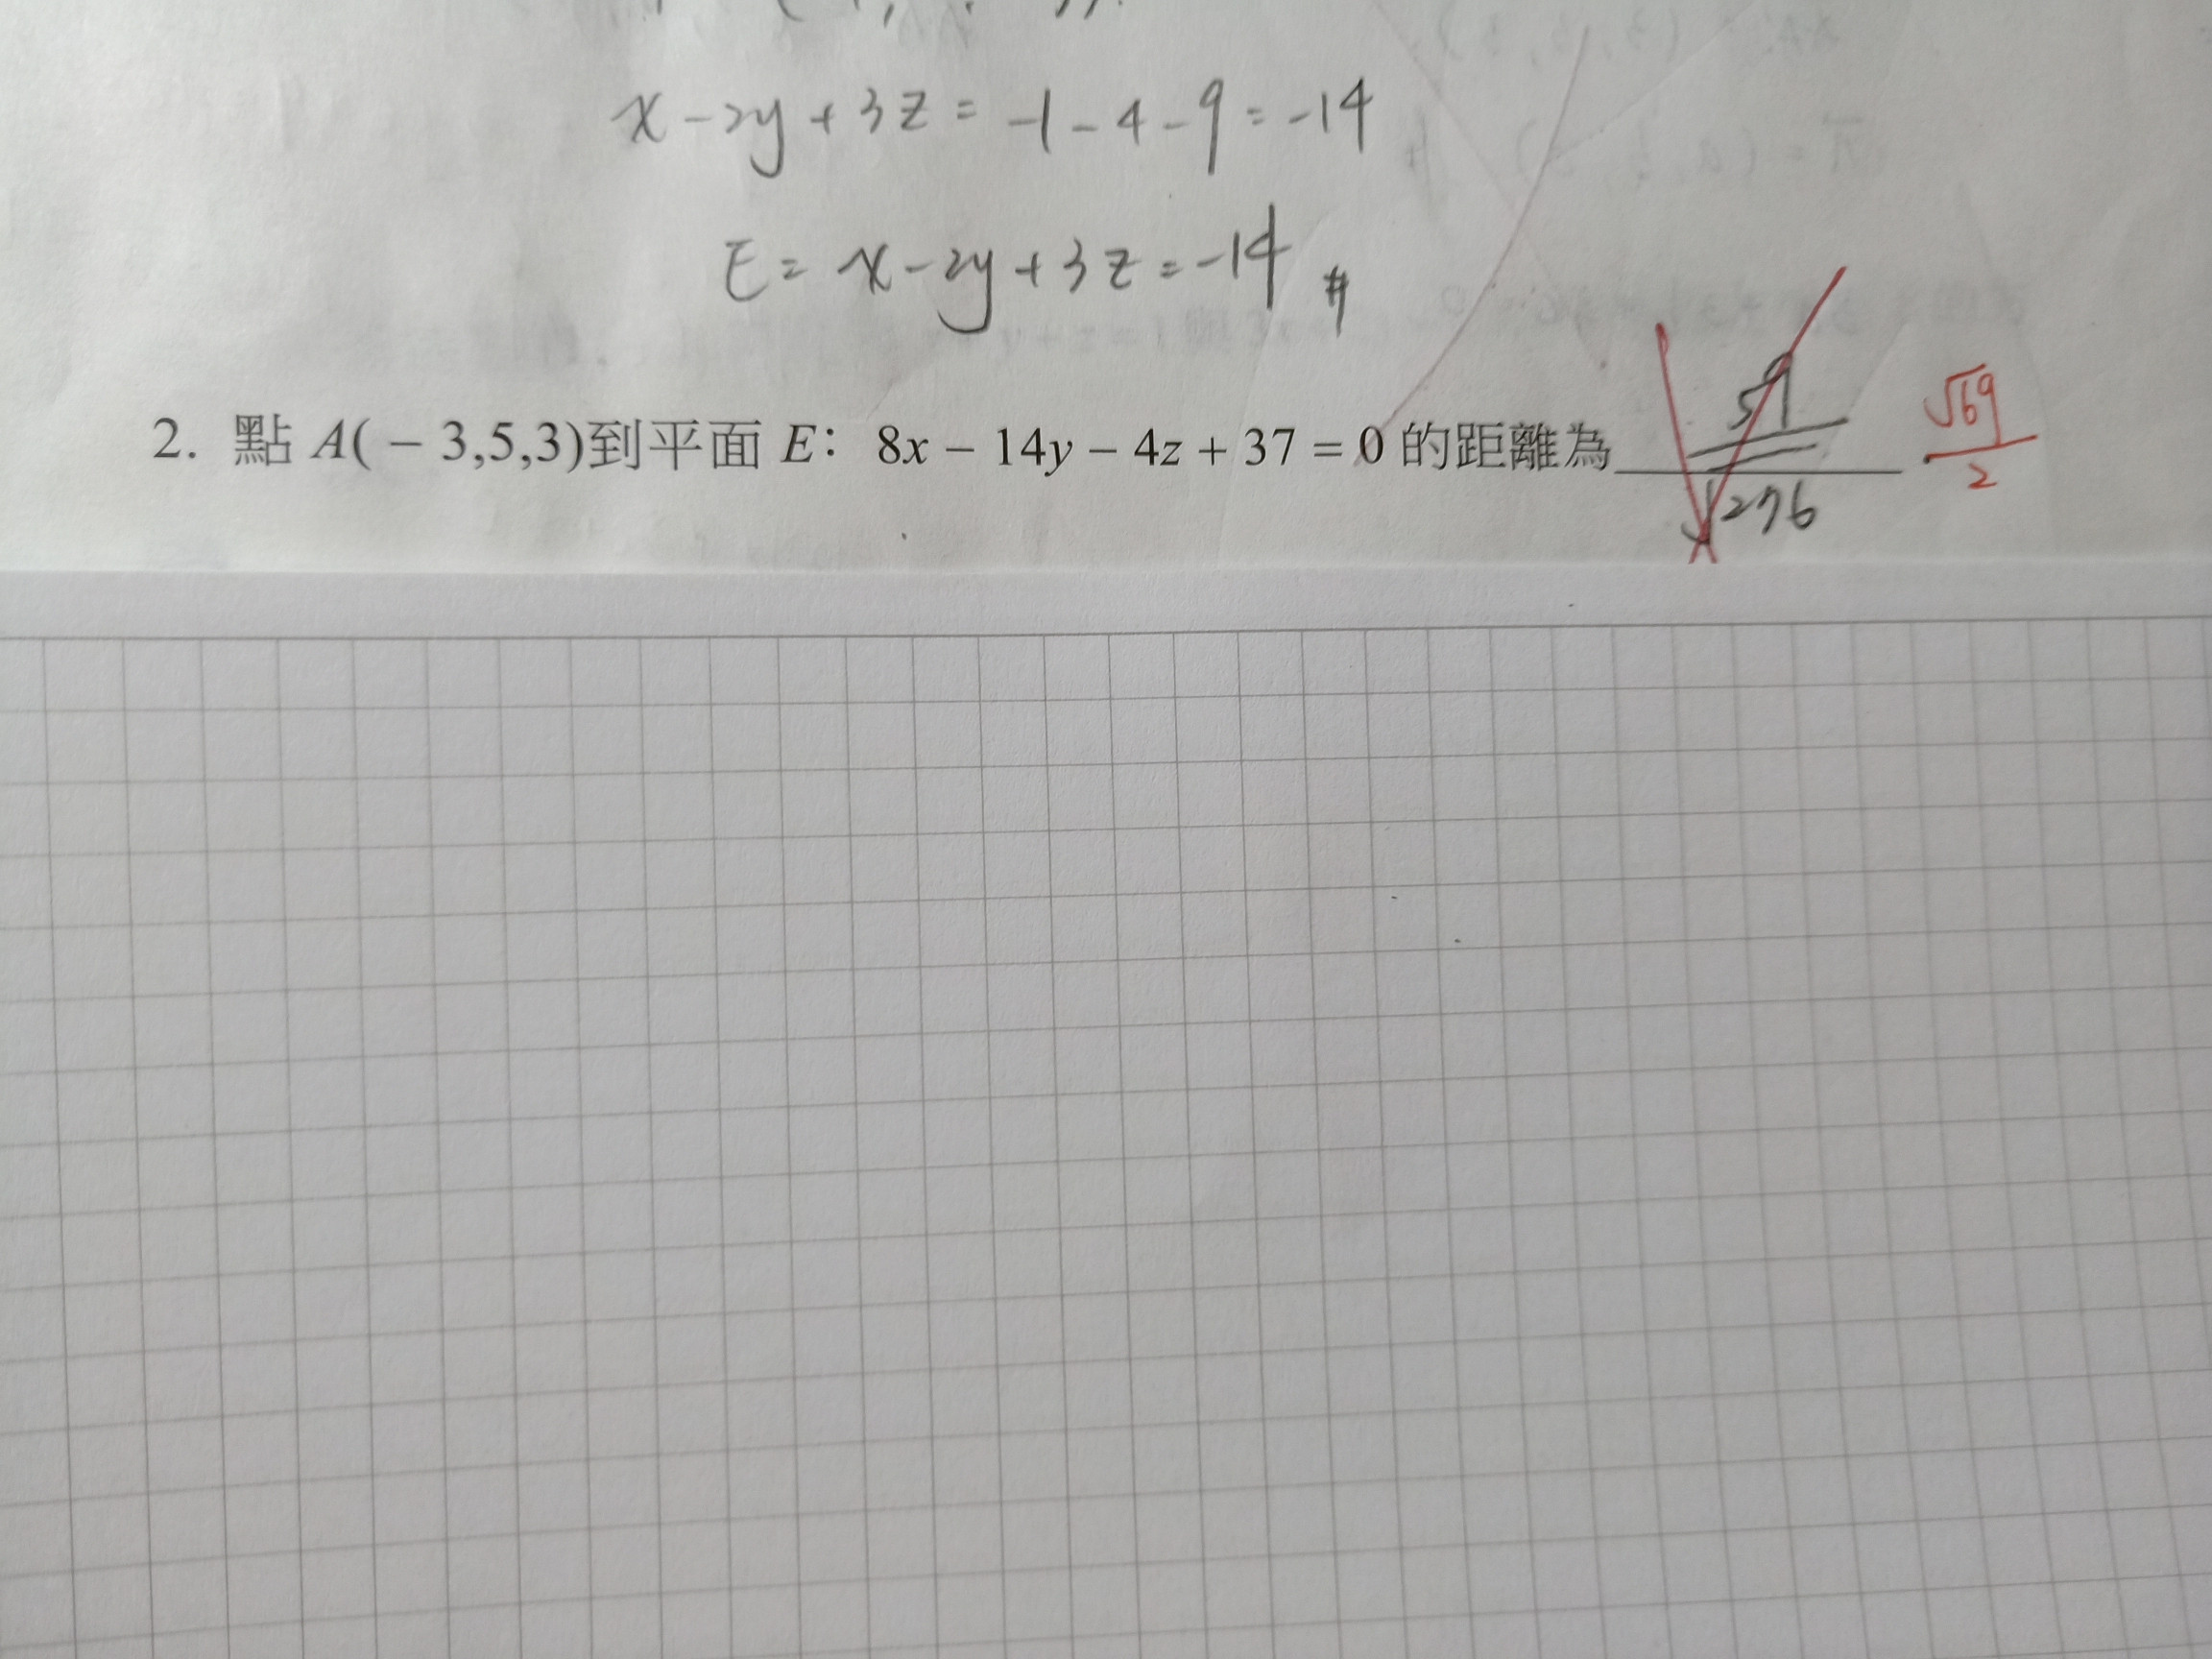 x-2y+3z=-1-4-9=-14
E=x-2y+3z=-14 #
2. 點 A(－3,5,3)到平面 E：8x－14y－4z＋37＝0 的距離為 59/√276 √69/2